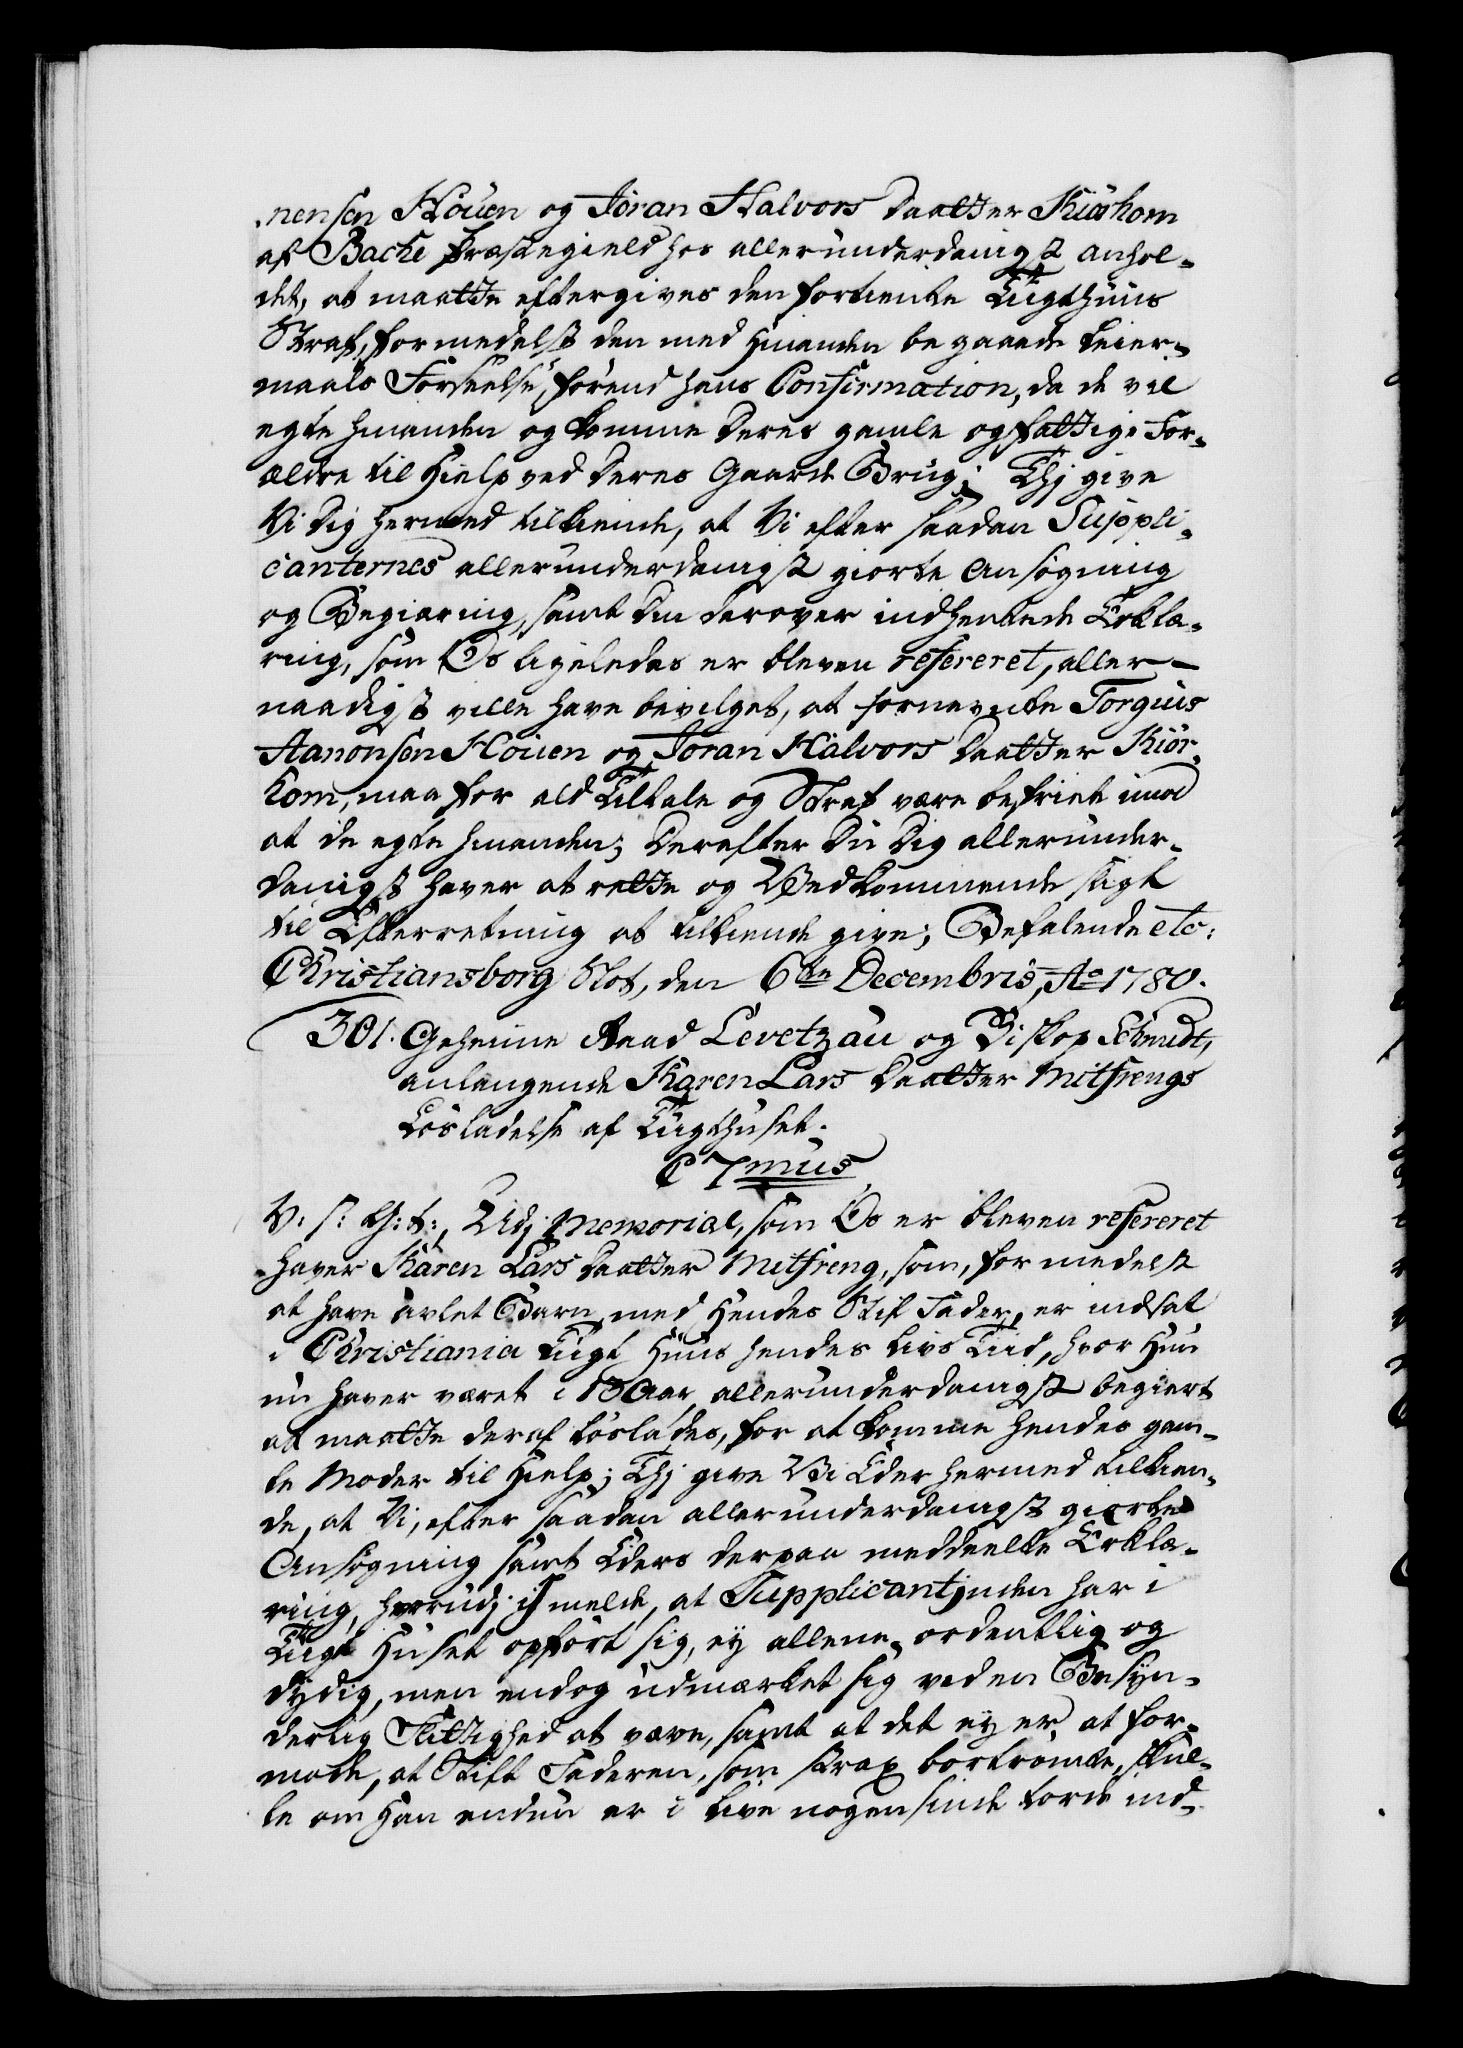 nensen Höuen og Jöran Halvors Daatter Kiörkom
af Backe Præstegield hos allerunderdanigst anhol-
det, at maatte eftergives den fortiente Tugthuus
Straf, formedelst den med hinanden begaaede Leier-
maals Forseelse, förend hans Confirmation, da de vil
egte hinanden og komme Deres gamle og fattige For-
ældre til Hielp ved Deres Gaards Brug; Thj give
Vi Dig hermed tilkiende, at Vi efter saadan Suppli-
canternes allerunderdanigst giorte Ansögning
og Begiæring, samt Din derover indhentede Erklæ-
ring, som Os ligeledes er bleven refereret, aller-
naadigst ville have bevilget, at fornævnte Torgius
Aanonsen Höuen og Jöran Halvors Daatter Kiör-
kom, maa for ald Tiltale og Straf være befriede imod
at de egte hinanden; Derefter Du Dig allerunder-
danigst haver at rette og Vedkommende sligt
til Efterretning at tilkiende give; Befalende etc:
Christiansborg Slot, den 6te Decembris, Ao 1780.
301. Geheime Raad Levetzau og Biskop Schmidt,
anlangende Karen Lars Daatter Mitfrengs
Lösladelse af Tugthuset.
C 7mus
V: s: G: t:, Udj Memorial, som Os er bleven refereret
haver Karen Lars Daatter Mitfreng, som, formedelst
at have avlet Barn med Hendes Stif Fader, er indsat
i Christiania Tugt Huus hendes Livs Tiid, hvor Hun
nu haver været i 13 Aar, allerunderdanigst begiert
at maatte deraf löslades, for at komme hendes gam-
le Moder til Hielp; Thj give Vi Eder hermed tilkien-
de, at Vi, efter saadan allerunderdanigst giorte
Ansögning samt Eders derpaa meddeelte Erklæ-
ring, hvorudj I melde, at Supplicantjnden har i
Tugt Huset opfört sig, ey allene ordentlig og
dydig, men endog udmærket sig ved en Besyn-
derlig Flittighed at være, samt at det ey er at for-
mode, at Stift Faderen, som strax bortrömte, skul-
le om Han endnu er i Live nogensinde torde ind-